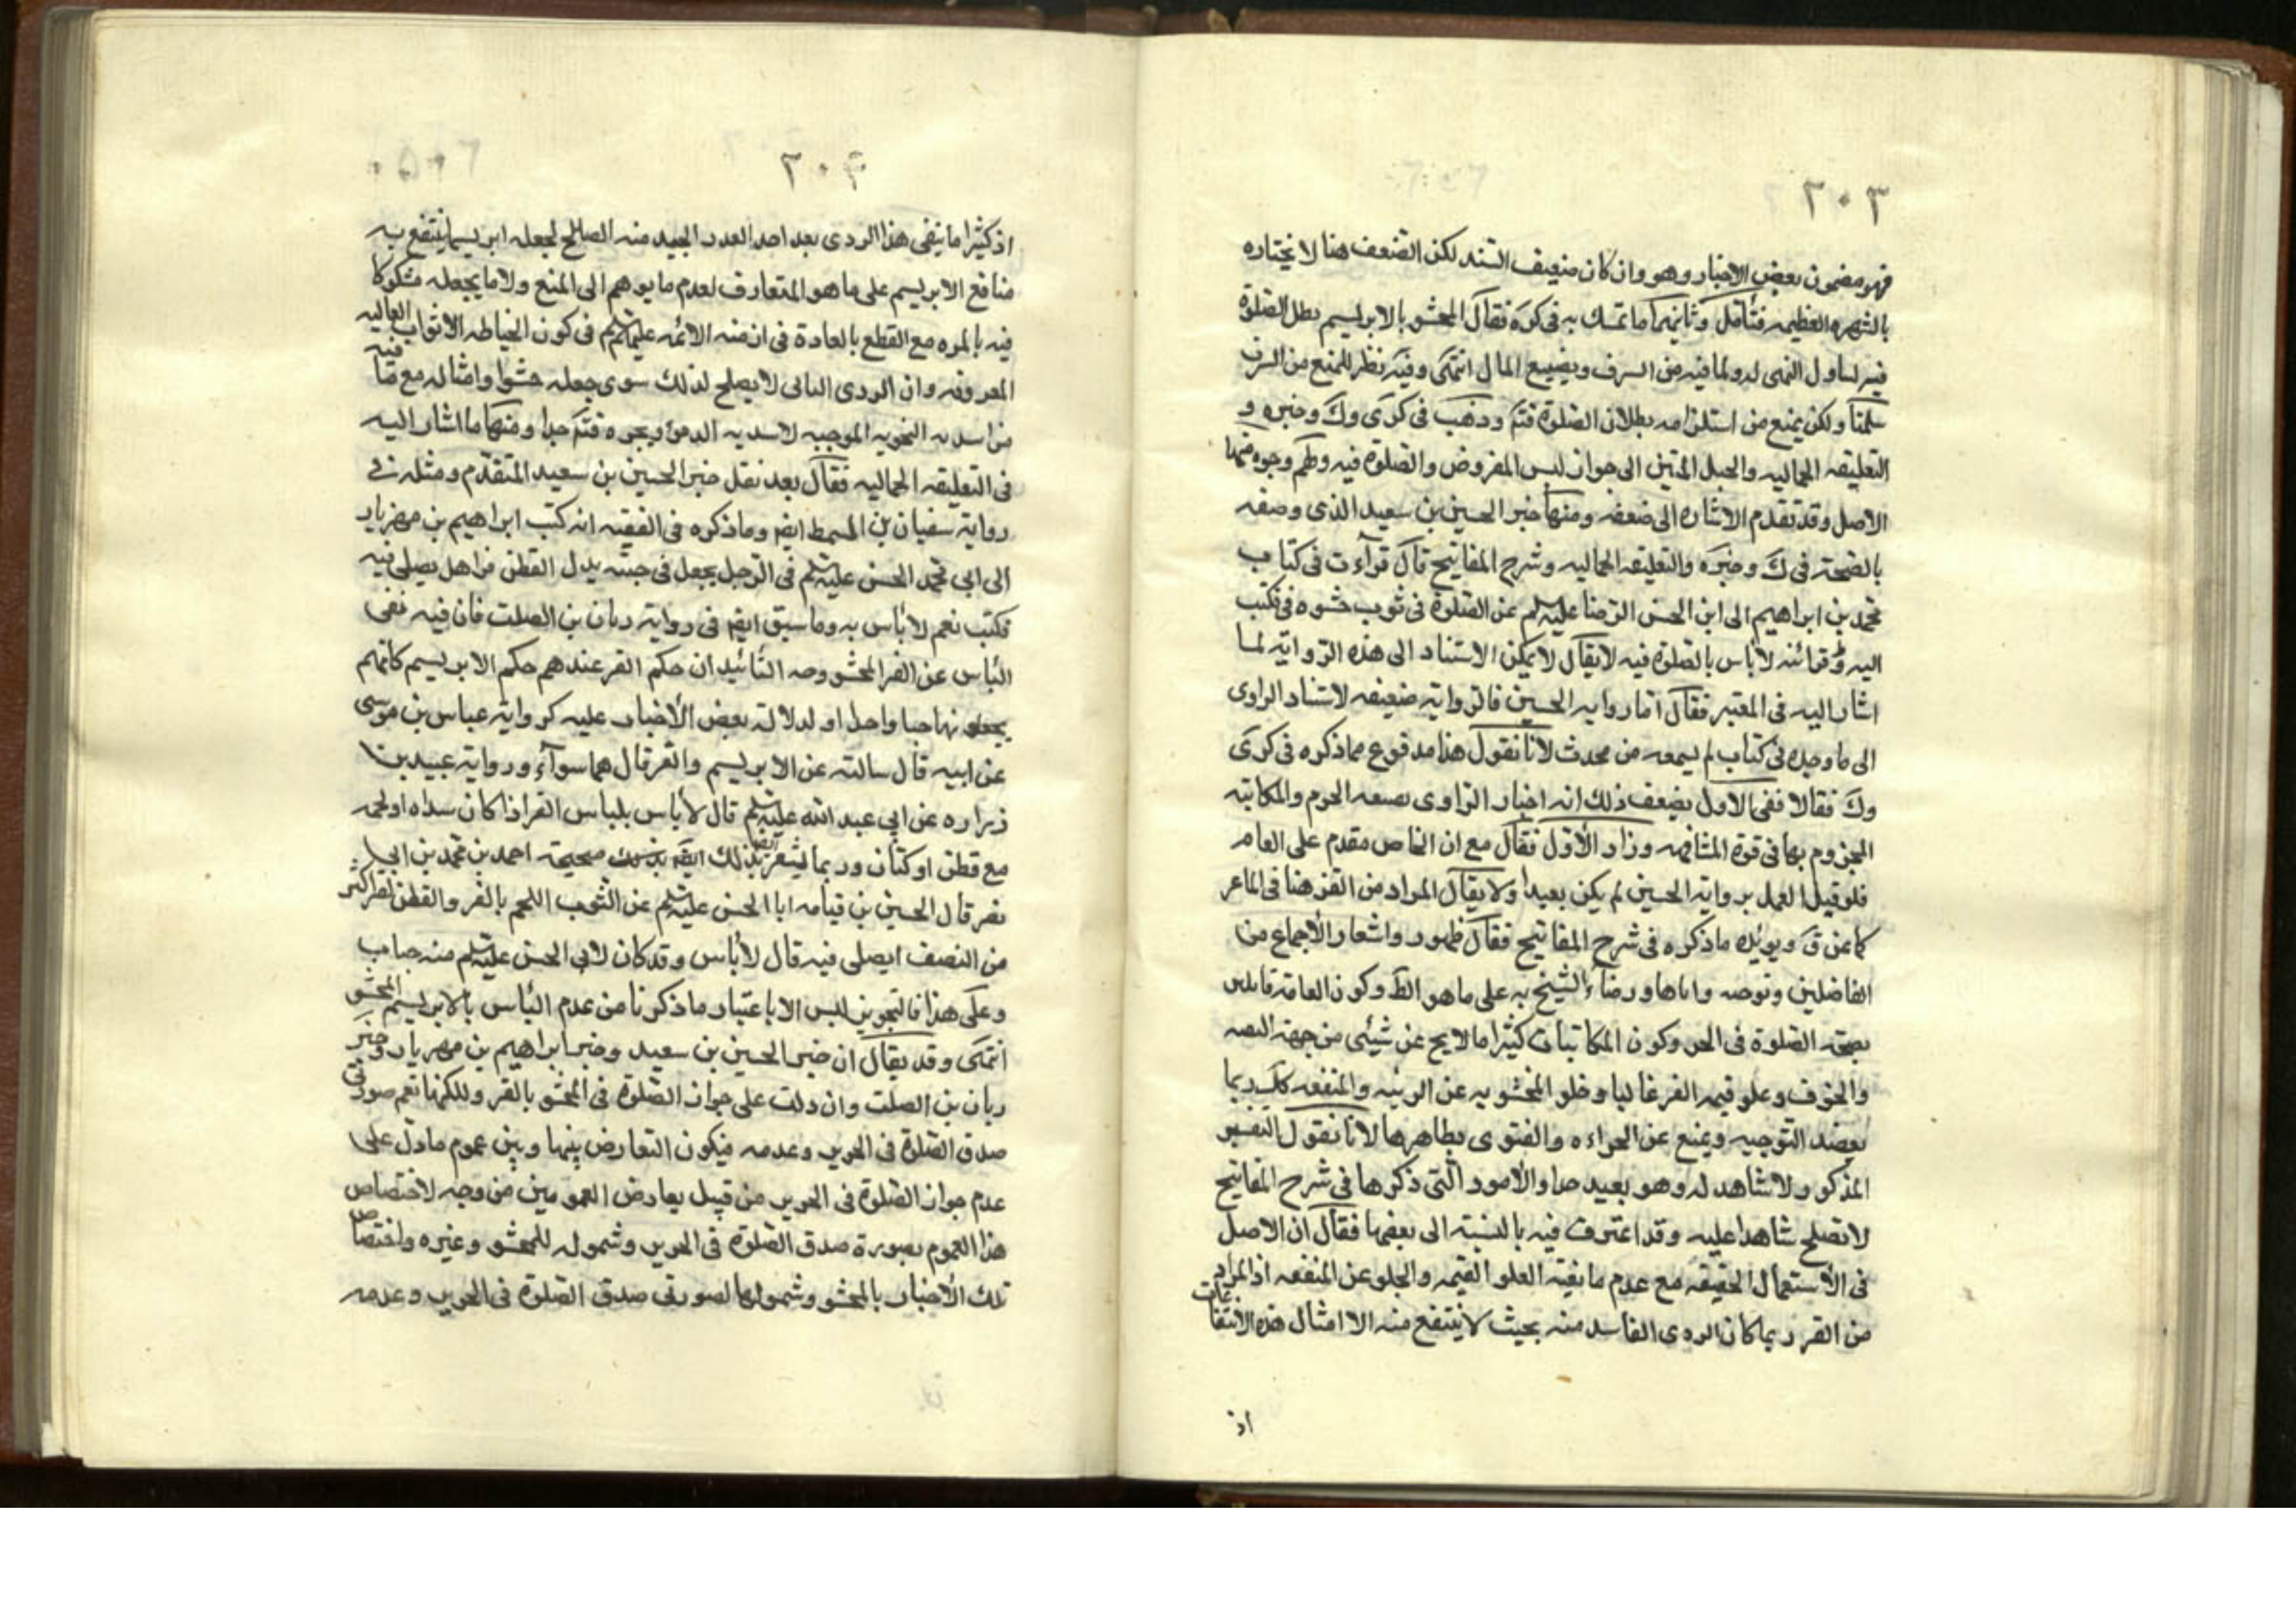 ٢٠٣
فهو مضمون بعض الاخبار وهو وان كان ضعيف السند لكن الضعف هنا لا نختاره
بالشهره العظيمه فتأمل وثانيهما ما تمسك به فى كره فقال المحشو بالابريسم بطل الصلوة
فيه لتناول النهى له ولما فيه من السرف وتضييع المال انتهى وفيه نظر للمنع من السرف
سلمنا ولكن يمنع من استلزامه بطلان الصلوة فتم وذهب فى كرى وك وخيره و
التعليقه الجماليه والحبل المتين الى جواز لبس المفروض والصلوة فيه ولهم وجوه منها
الاصل وقد تقدم الاشاره الى ضعفه ومنها خبر الحسين بن سعيد الذى وصفه
بالصحة فى ك وخيره والتعليقه الجماليه وشرح المفاتيح قال قرآءت فى كتاب
محمد بن ابراهيم الى ابن الحسن الرضا عليه السلم عن الصلوة فى ثوب حشوه قز فكتب
اليه وقرائته لا بأس بالصلوة فيه لا يقال لا يمكن الاستناد الى هذه الرواية لما
اشار اليه فى المعتبر فقال اما رواية الحسين فالرواية ضعيفه لاستناد الراوى
الى ما وجده فى كتاب لم يسمعه من محدث لانا نقول هذا مدفوع مما ذكره فى كرى
وك فقالا ففى الاول يضعف ذلك انه اخبار الراوى بصيغه الجزم والمكاتبه
المجزوم بها فى قوة المشافهه وزاد الاول فقال مع ان الخاص مقدم على العام
فلو قيل العمل برواية الحسين لم يكن بعيدا ولا يقال المراد من القز هنا قز الماعز
كما عن ق ويؤيده ما ذكره فى شرح المفاتيح فقال ظهور واشعار الاجماع من
الفاضلين وتوجيه واباها ورضاء الشيخ به على ما هو الظ وكون العامة قايلين
بصحة الصلوة فى الحرير وكون المكاتبات كثيرا ما لا يخ عن شيئى من جهة التقيه
والخوف وعلو قيمه القز غالبا وخلو المحشو به عن الزينه والمنفعه كك ربما
يعضد التوجيه ويمنع عن الجراءه والفتوى بظاهرها لانا نقول التفسير
المذكور لا شاهد له وهو بعيد جدا والامور التى ذكرها فى شرح المفاتيح
لا تصلح شاهدا عليه وقد اعترف فيه بالنسبة الى بعضها فقال ان الاصل
فى الاستعمال الحقيقه مع عدم مانعية العلو القيمه والخلو عن المنفعه اذ المراد
من القز ربما كان الردى الفاسد منه بحيث لا ينتفع منه الا امثال هذه الانتفاعات
اذ
٢٠۴
اذ كثيرا ما ينفى هذا الردى بعد اخذ القدر الجيد منه الصالح لجعله ابريسما ينتفع به
منافع الابريسم على ما هو المتعارف لعدم ما يوهم الى المنع ولا ما يجعله مشكوكا
فيه بالمره مع القطع بالعادة فى ازمنه الائمه عليهم السلم فى كون الخياطه الاثواب الغاليه
المعروفه وان الردى الباقى لا يصلح لذلك سوى جعله حشوا وامثاله مع ما فيه
من اسديه النحويه الموجبه لاسديه الدمؤ ونحوه فتم جدا ومنها ما اشار اليه
فى التعليقه الجماليه فقال بعد نقل خبر الحسين بن سعيد المتقدم ومثله فى
رواية سفيان بن السمط ايضا وما ذكره فى الفقيه انه كتب ابراهيم بن مهزيار
الى ابى محمد الحسن عليه السلم فى الرجل يجعل فى جبته بدل القطن قزا هل يصلى فيه
فكتب نعم لا بأس به وما سبق ايضا فى رواية ريان بن الصلت فان فيه نفى
البأس عن القز المحشو وجه التأئيد ان حكم القز عندهم حكم الابريسم كانهم
يجعلونها جنسا واحدا ولدلالة بعض الاخبار عليه كرواية عباس بن موسى
عن ابيه قال سالته عن الابريسم والقز قال هما سوآء ورواية عبيد بن
زراره عن ابى عبد الله عليه السلم قال لا بأس بلباس القز اذا كان سداه او لحمه
مع قطن او كتان وربما يشعر بذلك ايضا صحيحة احمد بن محمد بن ابى
نصر قال الحسين بن قيامه ابا الحسن عليه السلم عن الثوب الملحم بالقز والقطن القز اكثر
من النصف ايصلى فيه قال لا بأس وقد كان لابى الحسن عليه السلم منه جباب
وعلى هذا فالتجويز ليس الا باعتبار ما ذكرنا من عدم البأس بالابريسم المحشو
انتهى وقد يقال ان خبر الحسين بن سعيد وخبر ابراهيم بن مهزيار وخبر
ريان بن الصلت وان دلت على جواز الصلوة فى المحشو بالقز ولكنها تعم صورتى
صدق الصلوة فى الحرير وعدمه فيكون التعارض بينها وبين عموم ما دل على
عدم جواز الصلوة فى الحرير من قبيل تعارض العمومين من وجه لاختصاص
هذا العموم بصورة صدق الصلوة فى الحرير وشموله للمحشو وغيره واختصاص
تلك الاخبار بالمحشو وشمولها لصورتى صدق الصلوة فى الحرير وعدمه